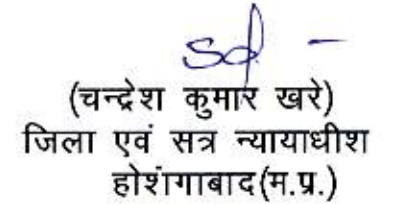 Sd -
(चन्द्रेश कुमार खरे)
जिला एवं सत्र न्यायाधीश
होशंगाबाद(म.प्र.)